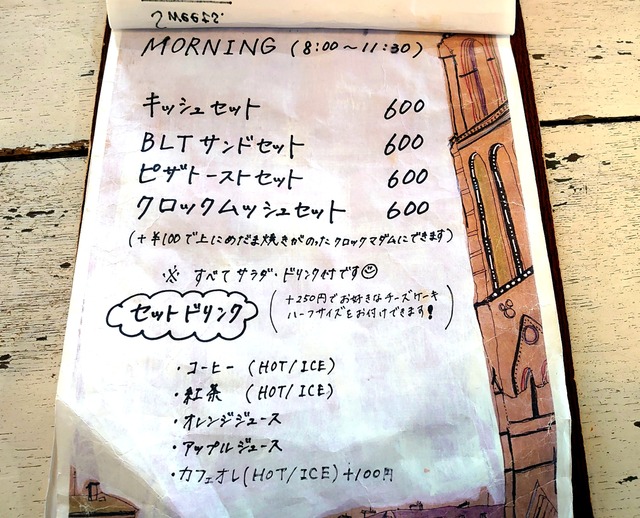 MORNING (8:00～11:30)
キッシュセット 600
BLTサンドセット 600
ピザトーストセット 600
クロックムッシュセット 600
(+¥100で上にめだま焼きがのったクロックマダムにできます)
※ すべてサラダ・ドリンク付です☺
セットドリンク
(+250円でお好きなチーズケーキ
ハーフサイズをお付けできます!)
・コーヒー (HOT/ICE)
・紅茶 (HOT/ICE)
・オレンジジュース
・アップルジュース
・カフェオレ(HOT/ICE)+100円